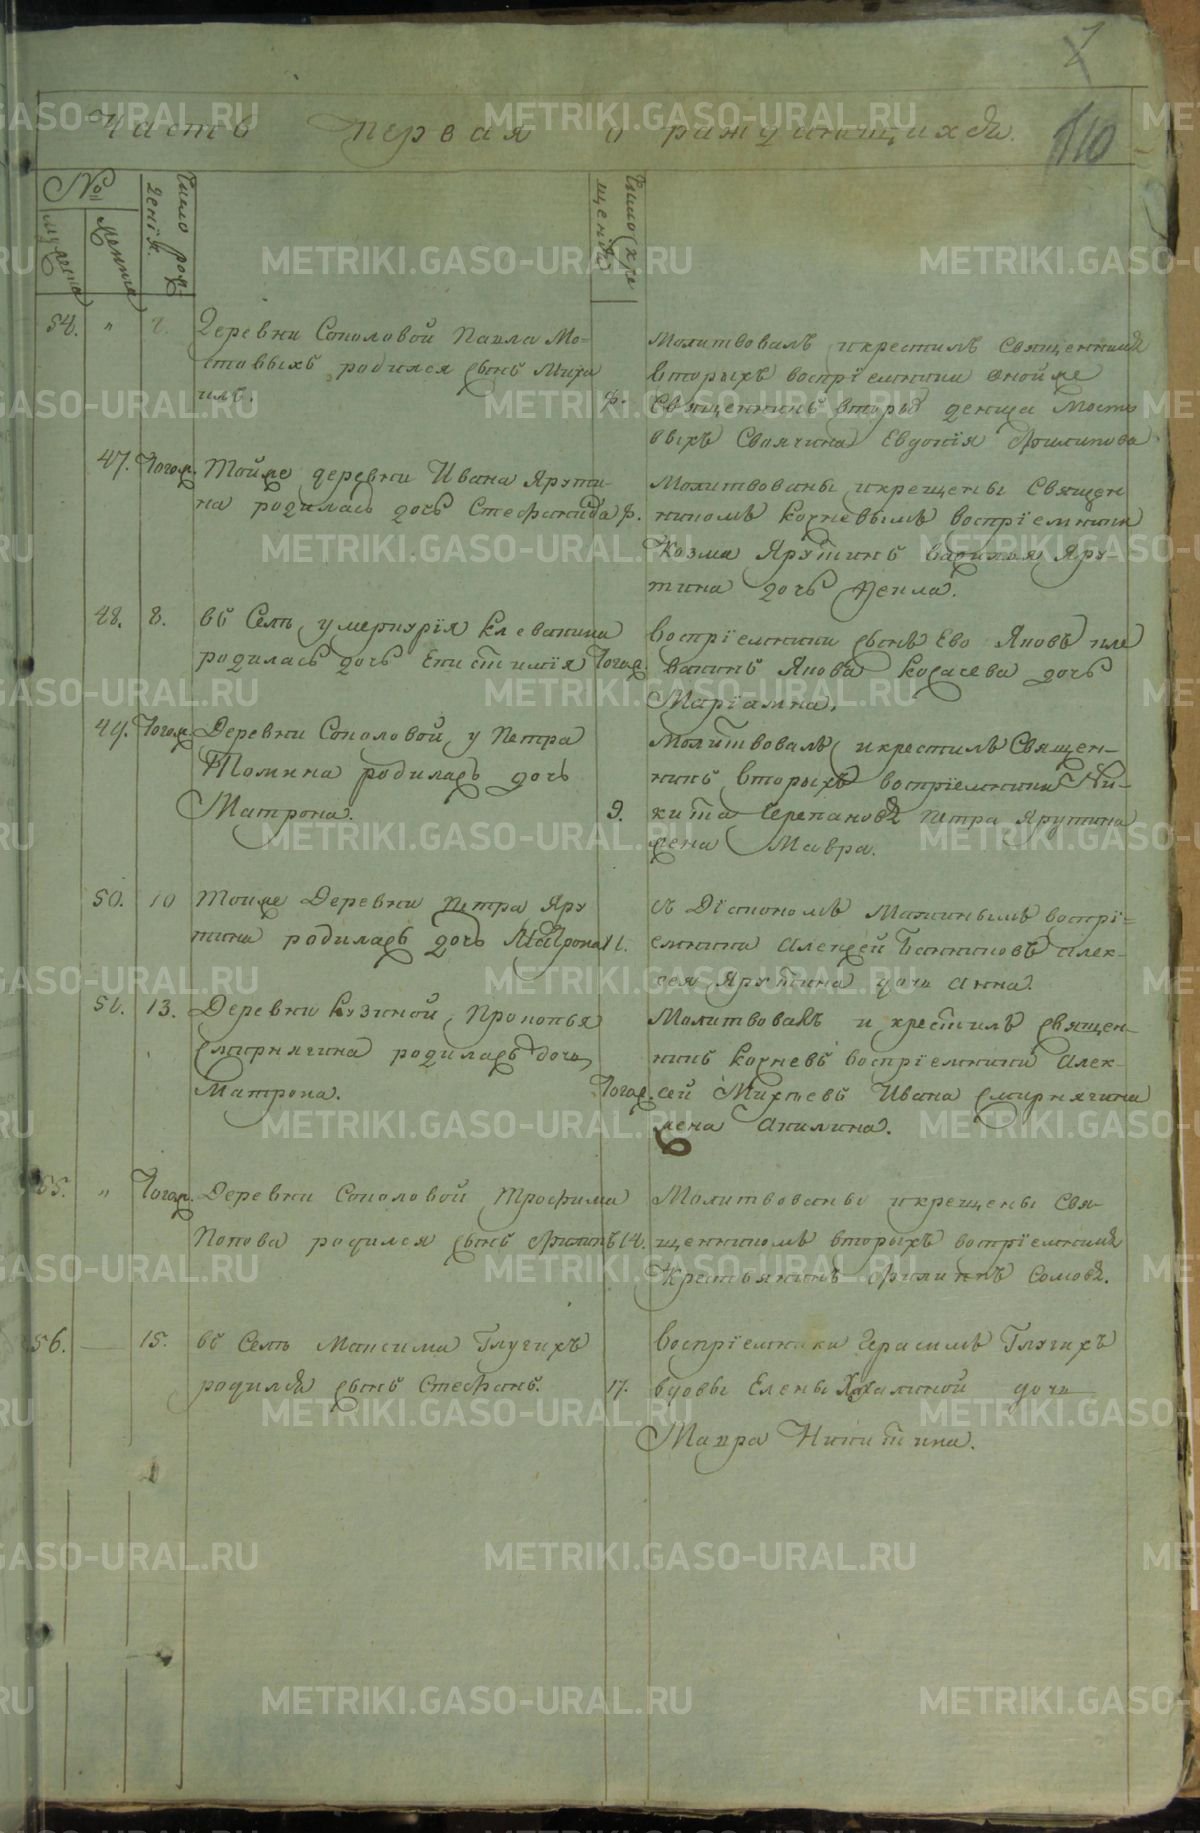 110
Часть первая о раждающихся.
№
мужеска
женска
число рождения.
число крещения
54. " 7. Деревни Соколовой Павла Мо-
стовыхъ родился сынъ Миха
илъ.
Молитвовалъ и крестилъ священникъ
Вторыхъ воспрiемники оной же
священникъ Вторыхъ девица Мосто
выхъ Своячина Евдокiя Филипова
47. Тогож. Той же деревни Ивана Ярути-
на родилась дочь Стефанида
Молитвованы и крещены Священ
никомъ Корневымъ воспрiемники
Козма Ярутинъ Яру-
тина дочь Фекла.
48. 8. въ Селе у меркурiя Клевакина
родилась дочь Епистимiя Тогож.
воспрiемники сынъ Ево Яковъ Кле
вакинъ Якова Косачева дочь
Марiамна.
49. Тогож. Деревни Соколовой у Петра
Томина родилась дочь
Матрона. 9.
Молитвовалъ и крестилъ Священ-
никъ Вторыхъ воспрiемники Ни-
кита Черепановъ Петра Ярутина
жена Мавра.
50. 10 Той же Деревни Петра Яру
тина родилась дочь Матрона 11.
съ Дiакономъ воспрi-
емники Алексей Алек-
сея Ярутина дочь Анна.
51. 13. Деревни Кузиной Прокопья
Смирнягина родилась дочь
Матрона. Тогож.
Молитвовалъ и крестилъ священ-
никъ Корневъ воспрiемники Алек-
сей Михеевъ Ивана Смирнягина
жена Акилина.
55. " Тогож. Деревни Соколовой Трофима
Попова родился сынъ Филипъ 14.
Молитвованы и крещены Свя-
щенникомъ Вторыхъ воспрiемники
Крестьянинъ Филиппъ Сомовъ.
56. — 15. въ Селе Максима Глухихъ
родился сынъ Стефанъ. 17.
воспрiемники Герасимъ Глухихъ
вдовы Елены дочь
Мавра Никитина.
METRIKI.GASO-URAL.RU